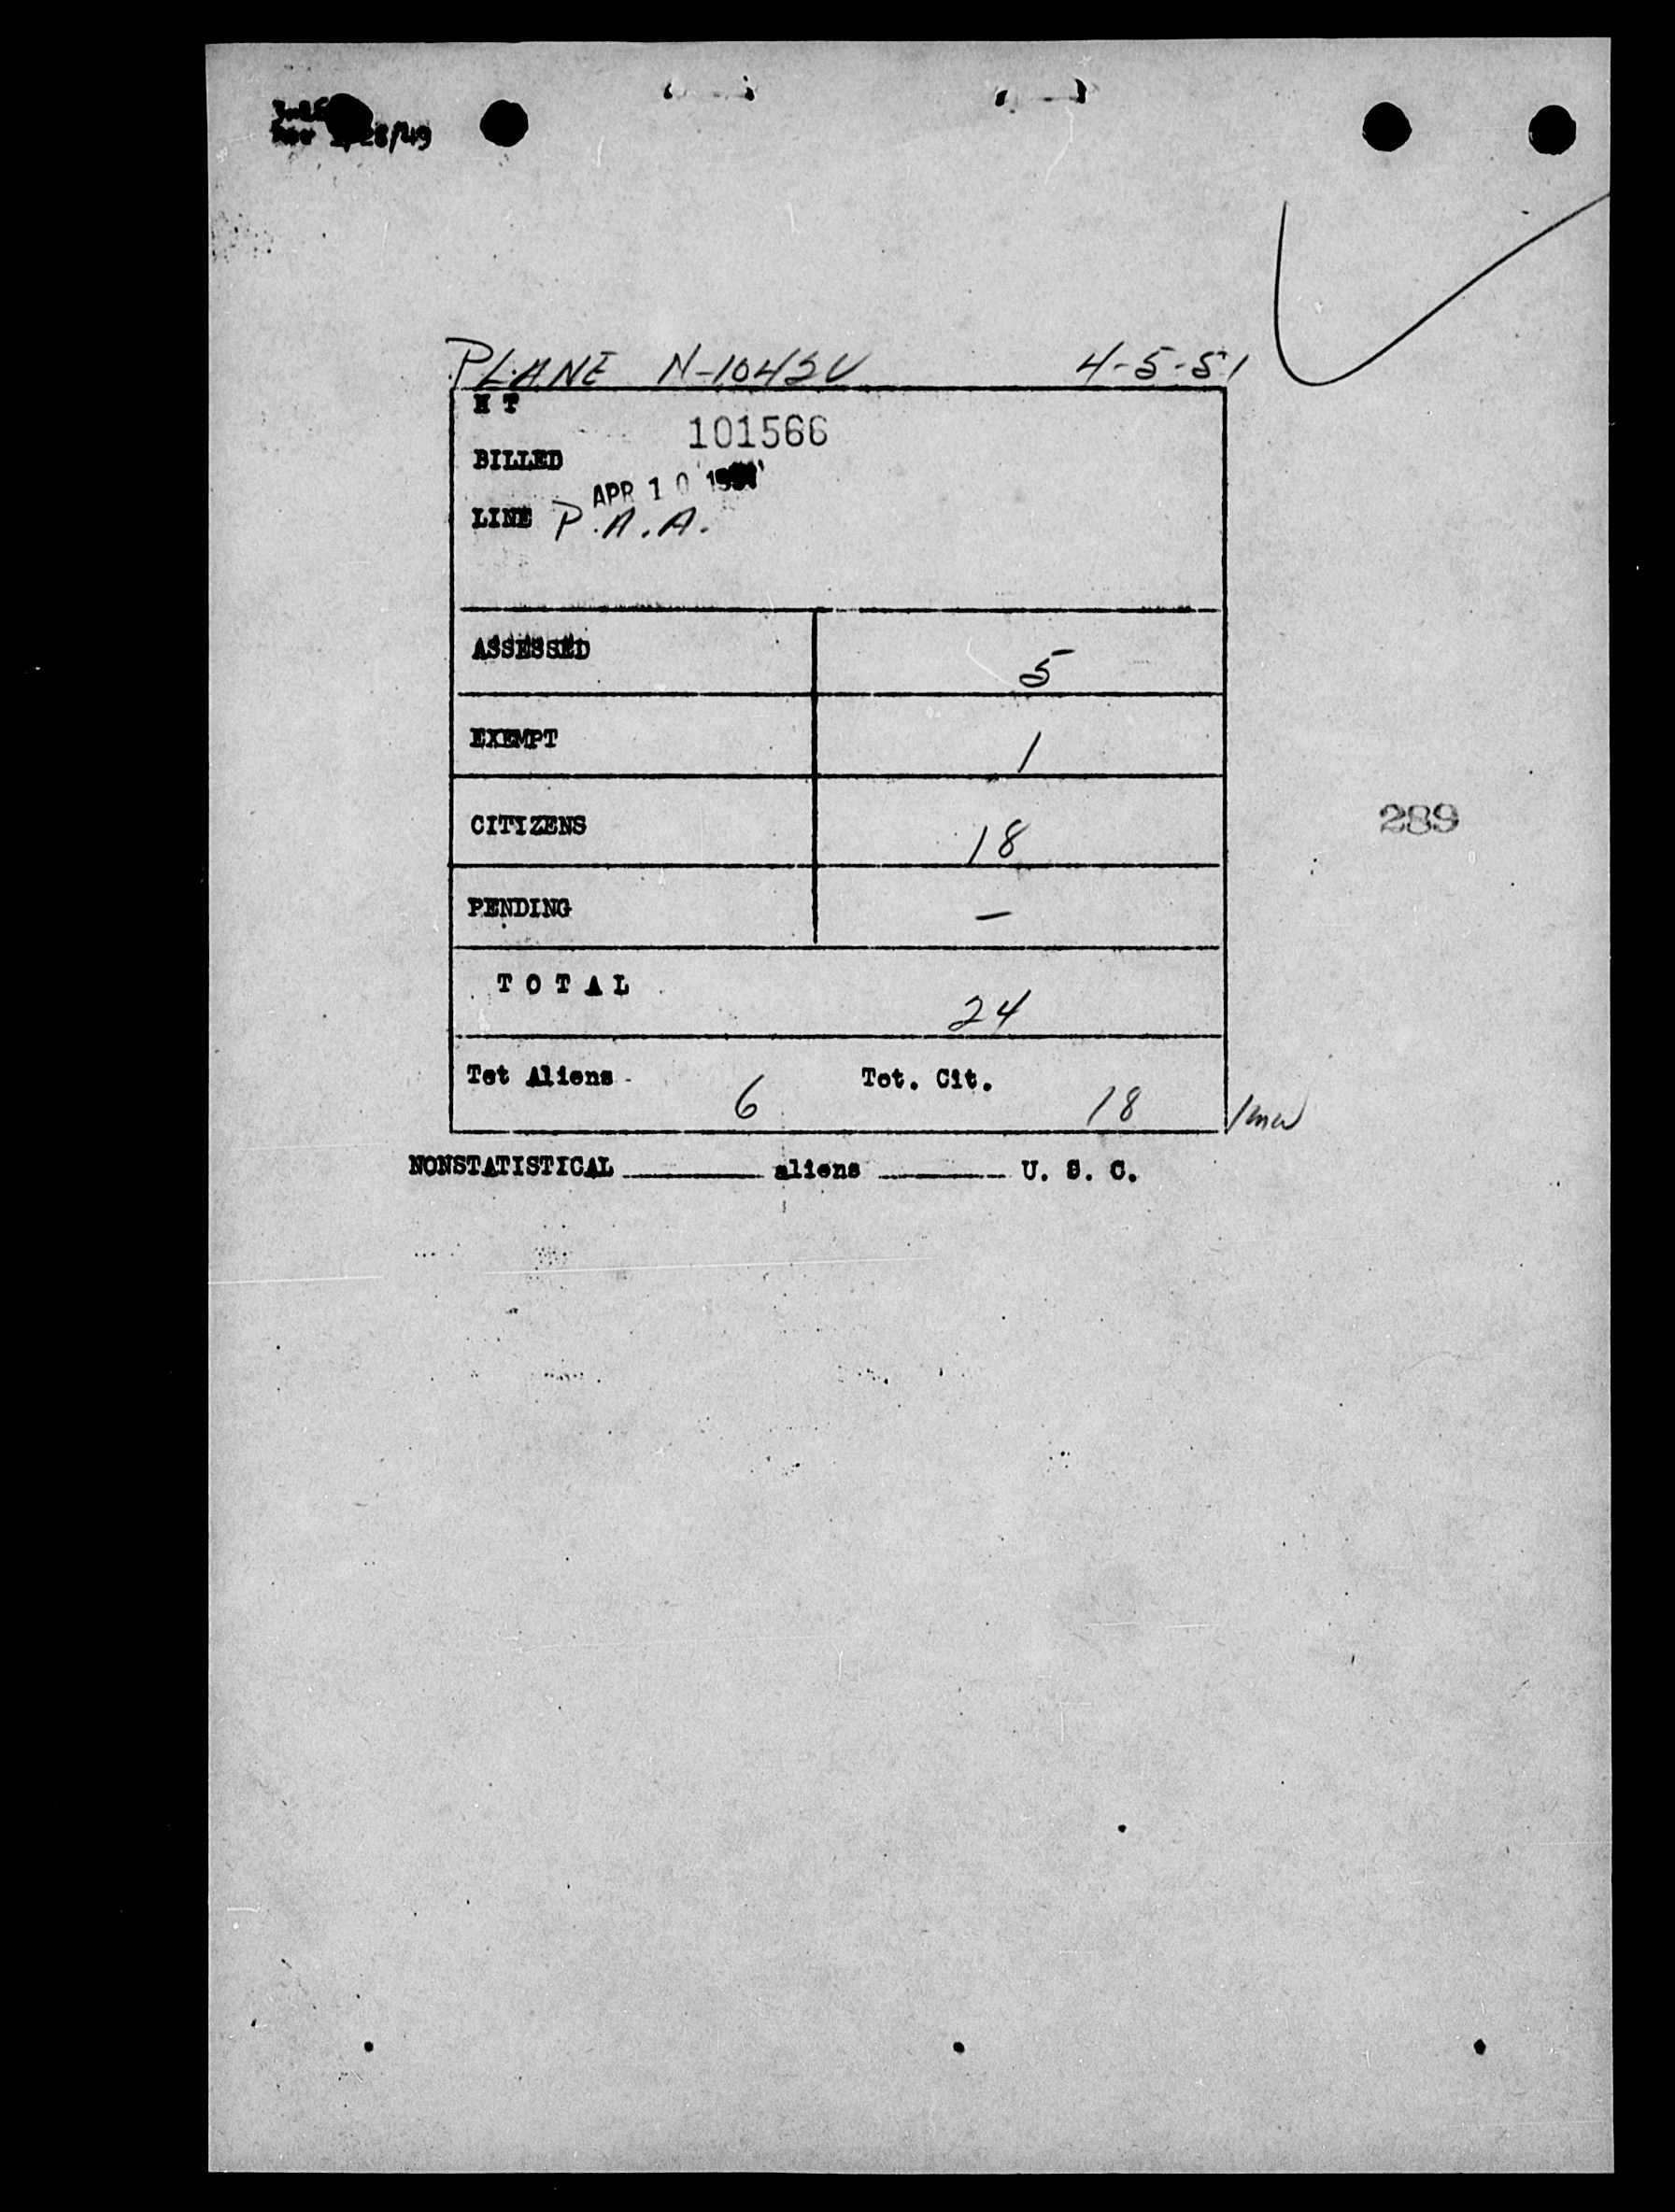 /28/49
PLANE N-1042V 4-5-51
H T
101566
BILLED
APR 10 1951
LINE P.A.A.
ASSESSED 5
EXEMPT 1
CITIZENS 18
289
PENDING —
T O T A L 24
Tot Aliens 6 Tot. Cit. 18
NONSTATISTICAL ______ aliens ______ U. S. C.